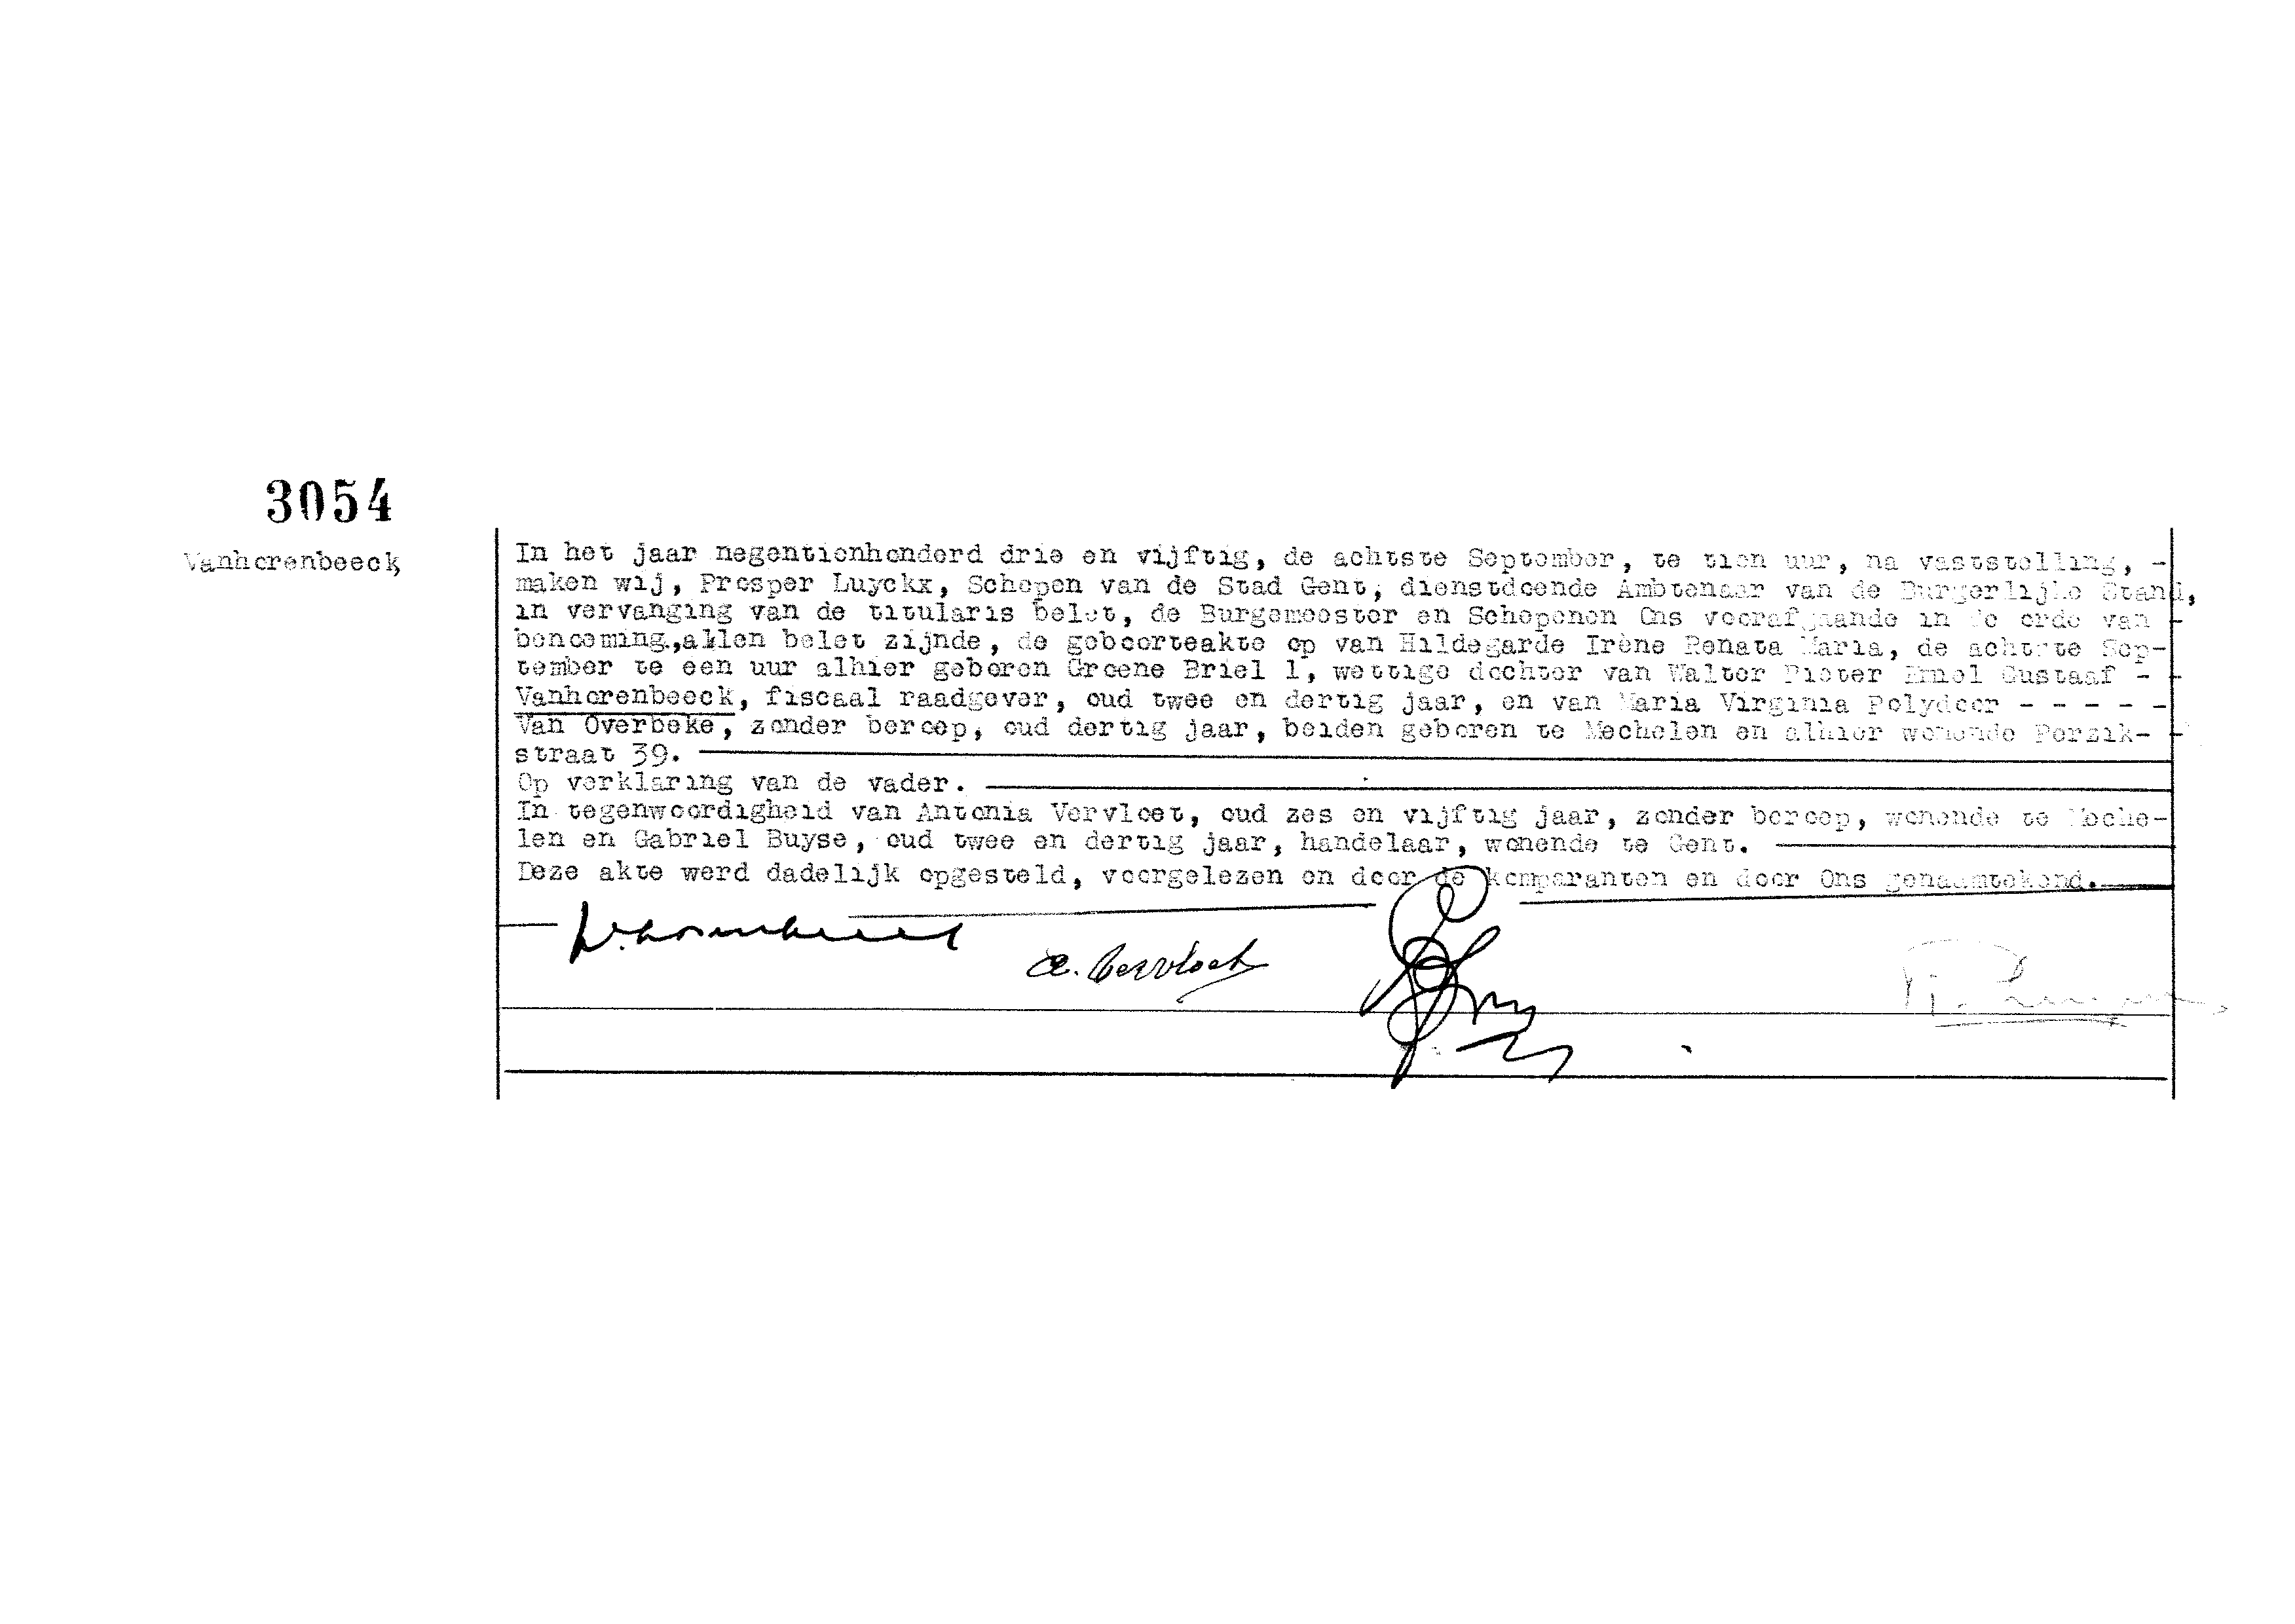 3054
Vanhorenbeeck
In het jaar negentienhonderd drie en vijftig, de achtste September, te tien uur, na vaststelling, -
maken wij, Prosper Luyckx, Schepen van de Stad Gent, dienstdoende Ambtenaar van de Burgerlijke Stand,
in vervanging van de titularis belet, de Burgemeester en Schepenen Ons voorafgaande in de orde van -
benoeming.,allen belet zijnde, de geboorteakte op van Hildegarde Irène Renata Maria, de achtste Sep-
tember te een uur alhier geboren Groene Briel 1, wettige dochter van Walter Pieter Emiel Gustaaf - -
Vanhorenbeeck, fiscaal raadgever, oud twee en dertig jaar, en van Maria Virginia Polydoor - - - - -
Van Overbeke, zonder beroep, oud dertig jaar, beiden geboren te Mechelen en alhier wonende Perzik- -
straat 39.
Op verklaring van de vader.
In tegenwoordigheid van Antonia Vervloet, oud zes en vijftig jaar, zonder beroep, wonende te Meche-
len en Gabriel Buyse, oud twee en dertig jaar, handelaar, wonende te Gent.
Deze akte werd dadelijk opgesteld, voorgelezen en door de komparanten en door Ons genaamtekend.
A. Vervloet